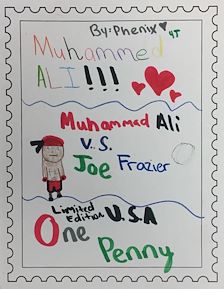 By: Phenix 4T
Muhammed
ALI!!!
Muhammad Ali
V.S.
Joe Frazier
Limited Edition U.S.A
One
Penny